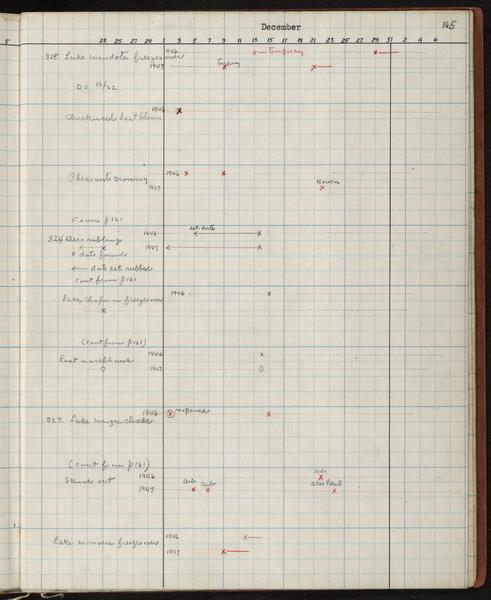 December
165
5 23 25 27 29 1 3 5 7 9 11 13 15 17 19 21 23 25 27 29 31 2 4 6
328 Lake Mendota freezes over 1946 x— temporary x—
1947 x x—
D = 12/22
Chickweed last bloom 1946 x
Pheasants crowing 1946 x x
1947 x
From p161
324 Deer rubbings 1946 est. date x
1947 x
x date found
← date est. rubbed
Cont from p161
Lake Chapman freezes over 1946 x
x
(Cont from p161)
Last marsh hawk 1946 x
1947 O
1946 x reopened x
327. Lake Wingra closes
(Cont from p161)
Skunk out 1946 arb x
1947 arb x arb x x
Lake Monona freezes over 1946 x—
1947 x—